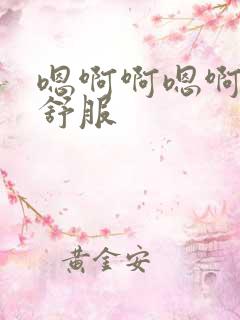 嗯啊啊嗯啊
舒服
黄金安